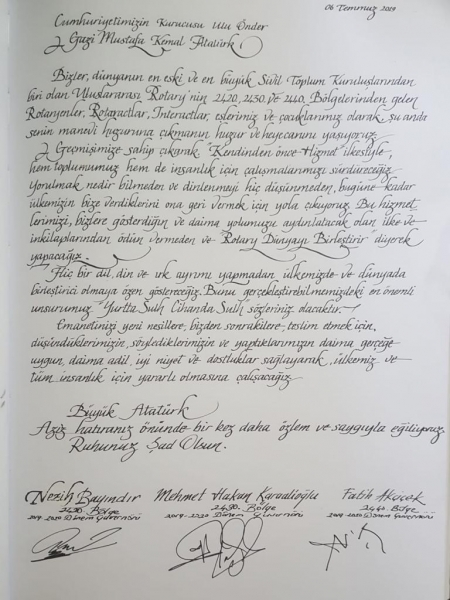 06 Temmuz 2019
Cumhuriyetimizin Kurucusu Ulu Önder
Gazi Mustafa Kemal Atatürk,
Bizler, dünyanın en eski ve en büyük Sivil Toplum Kuruluşlarından
biri olan Uluslararası Rotary'nin 2420, 2430, ve 2440. Bölgelerinden gelen
Rotaryenler, Rotaractlar, Interactler, eşlerimiz ve çocuklarımız olarak, şu anda
senin manevi huzuruna çıkmanın huzur ve heyecanını yaşıyoruz.
Geçmişimize sahip çıkarak, "Kendinden önce Hizmet" ilkesiyle,
hem toplumumuz hem de insanlık için çalışmalarımızı sürdüreceğiz.
Yorulmak nedir bilmeden ve dinlenmeyi hiç düşünmeden, bugüne kadar
ülkemizin bize verdiklerini ona geri vermek için yola çıkıyoruz. Bu hizmet
lerimizi, bizlere gösterdiğin ve daima yolumuzu aydınlatacak olan ilke ve
inkılaplarından ödün vermeden ve Rotary Dünyayı Birleştirir" diyerek
yapacağız.
Hiç bir dil, din ve ırk ayrımı yapmadan ülkemizde ve dünyada
birleştirici olmaya özen göstereceğiz. Bunu gerçekleştirebilmemizdeki en önemli
unsurumuz "Yurtta Sulh Cihanda Sulh" sözleriniz olacaktır.
Emanetinizi yeni nesillere, bizden sonrakilere, teslim etmek için,
düşündüklerimizin, söylediklerimizin ve yaptıklarımızın daima gerçeğe
uygun, daima adil, iyi niyet ve dostluklar sağlayarak, ülkemiz ve
tüm insanlık için yararlı olmasına çalışacağız.
Büyük Atatürk
Aziz hatıranız önünde bir kez daha özlem ve saygıyla eğiliyoruz.
Ruhunuz Şad Olsun.
Nezih Bayındır Mehmet Hakan Karaalioğlu Fatih Akçiçek
2420. Bölge 2430. Bölge 2440. Bölge
2019-2020 Dönem Guvernörü 2019-2020 Dönem Guvernörü 2019-2020 Dönem Guvernörü